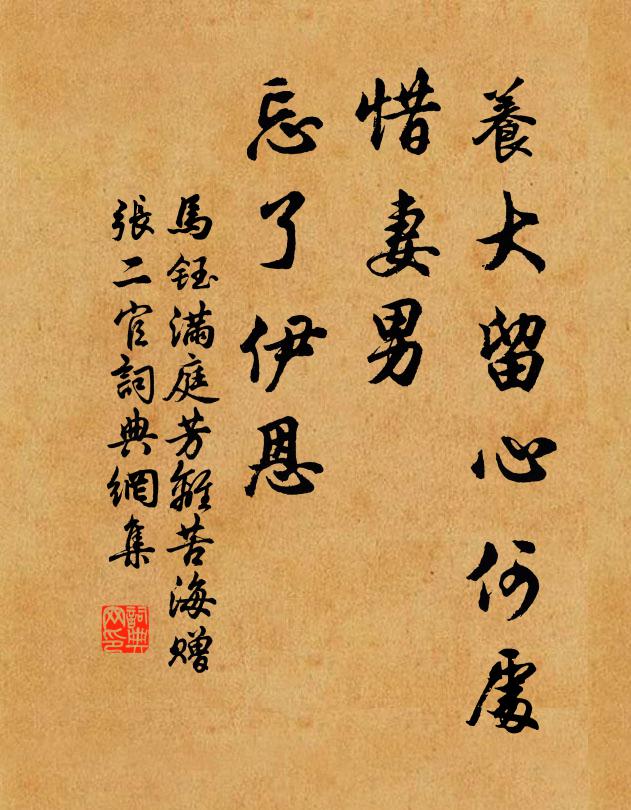 養大留心何處
惜妻男
忘了伊恩
馬鈺滿庭芳離苦海贈
張二官詞典網集
詞典網印